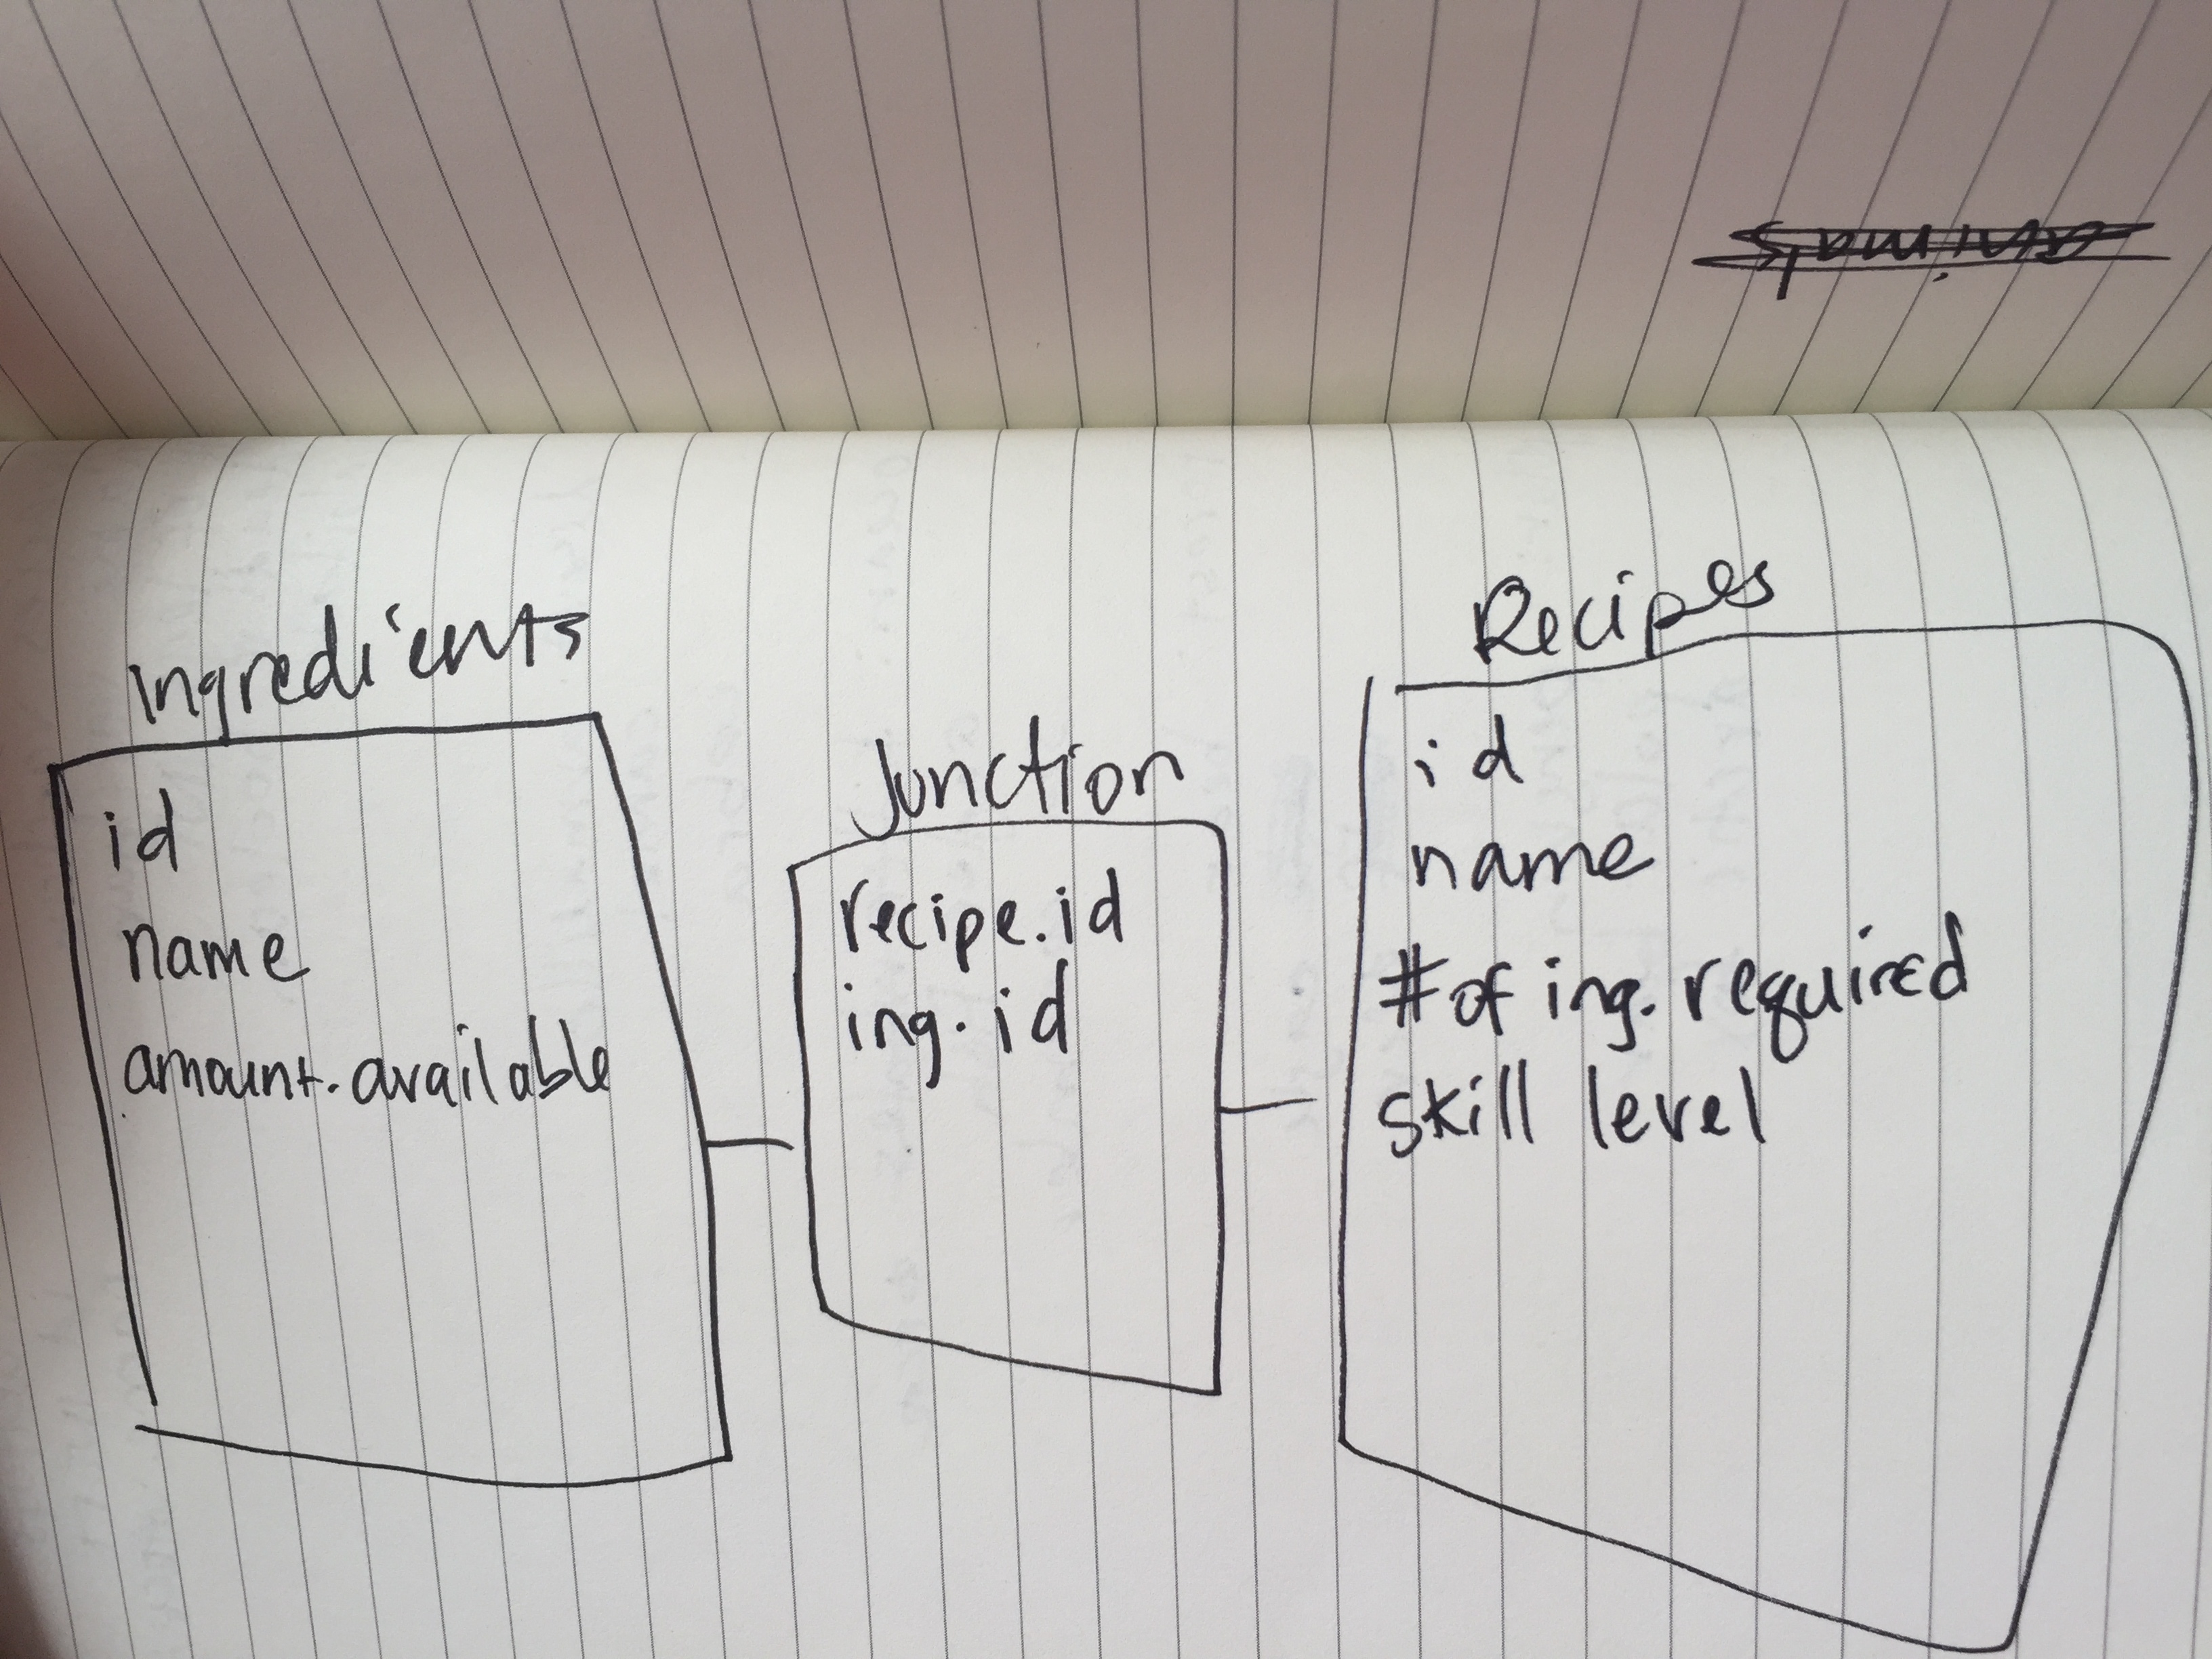 Ingredients
id
name
amount.available
Junction
recipe.id
ing.id
Recipes
id
name
#of ing. required
skill level